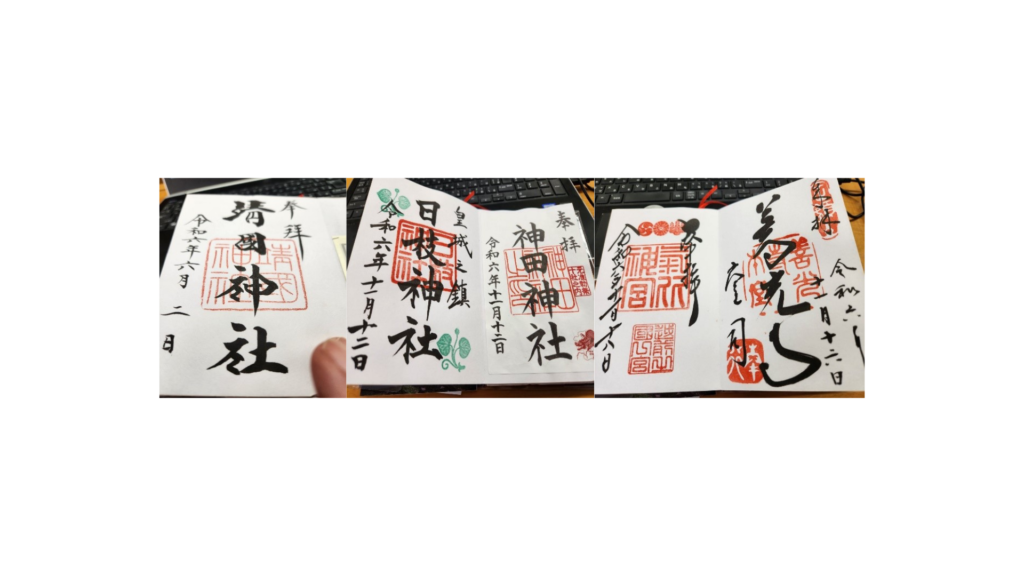 奉拝
靖國神社
令和六年六月二日
奉拝
神田神社
令和六年十一月十二日
皇城之鎮
日枝神社
令和六年十一月十二日
奉拝
令和六年
十一月十六日
善光寺
奉拝
令和六年十一月十六日